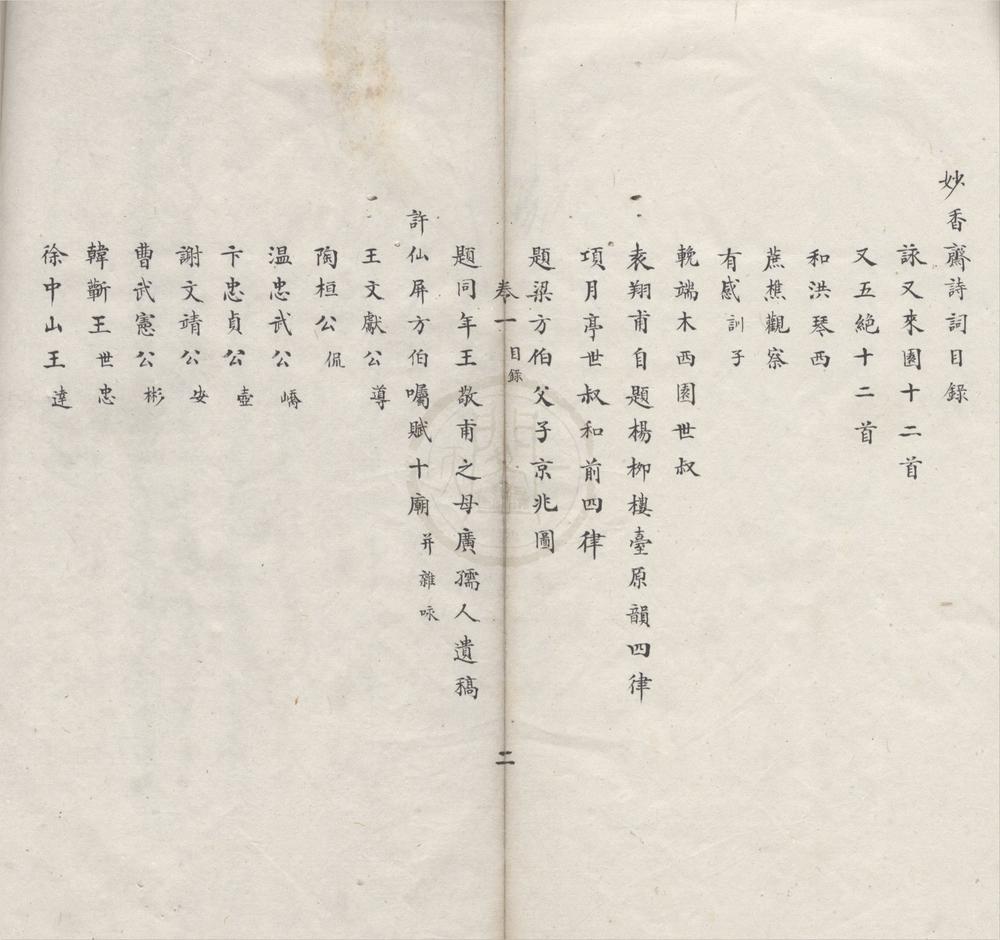 妙香齋詩詞目錄
詠又來園十二首
又五絕十二首
和洪琴西
蔗樵觀察
有感訓子
輓端木西園世叔
袁翔甫自題楊柳樓臺原韻四律
項月亭世叔和前四律
題梁方伯父子京兆圖
卷一 目錄 二
題同年王敬甫之母廣孺人遺稿
許仙屏方伯囑賦十廟并雜咏
王文獻公導
陶桓公侃
温忠武公嶠
卞忠貞公壼
謝文靖公安
曹武憲公彬
韓蘄王世忠
徐中山王達